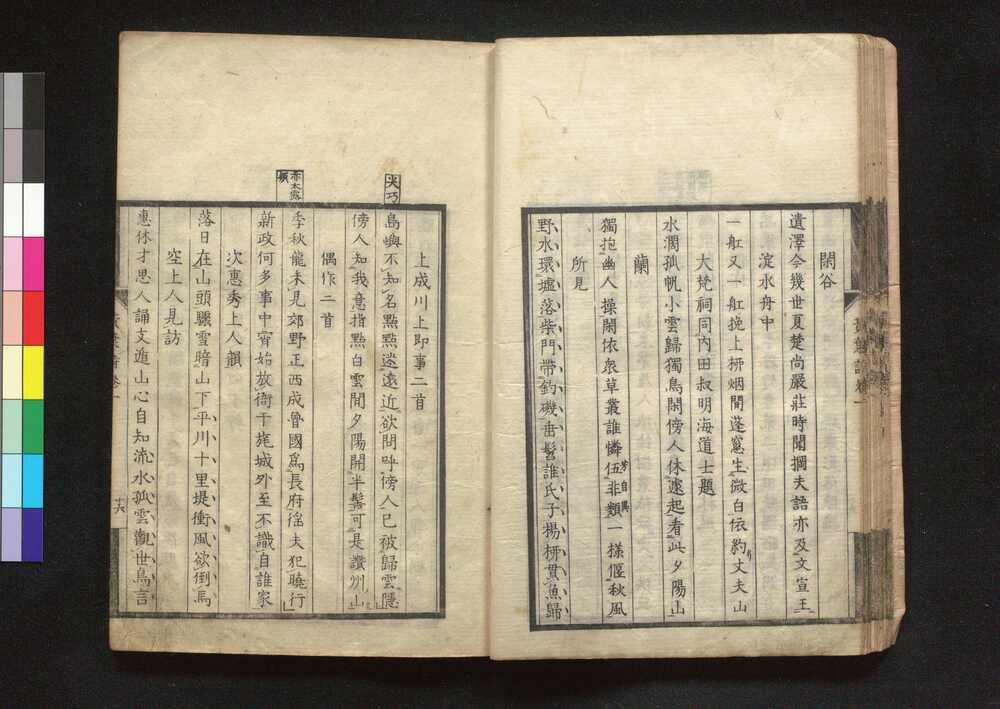 閑谷
遺澤今幾世夏楚尚嚴莊時聞擱夫語亦及文宣王
淀水舟中
一舡又一舡挽上柳烟間蓬窓生微白依豹丈夫山
大梵祠同內田叔明海道士題
水濶孤帆小雲歸獨鳥閑傍人休遽起看此夕陽山
蘭
獨抱幽人操閑依衆草叢誰憐伍非類一樣偃秋風
芳自異
所見
野水環墟落柴門帶釣磯垂髫誰氏子楊柳貫魚歸
黃葉
尖巧
上成川上即事二首
島嶼不知名點點迷遠近欲問呼傍人已被歸雲隱
傍人知我意指點白雲間夕陽開半鬟可是讚州山
偶作二首
赤木露
季秋龍未見郊野正西成魯國爲長府徭夫犯曉行
新政何多事中宵始放衙干旄城外至不識自誰家
次惠秀上人韻
落日在山頭驟雪暗山下平川十里堤衝風欲倒馬
空上人見訪
惠休才思人誦文進山心自知流水孤雲觀世鳥言